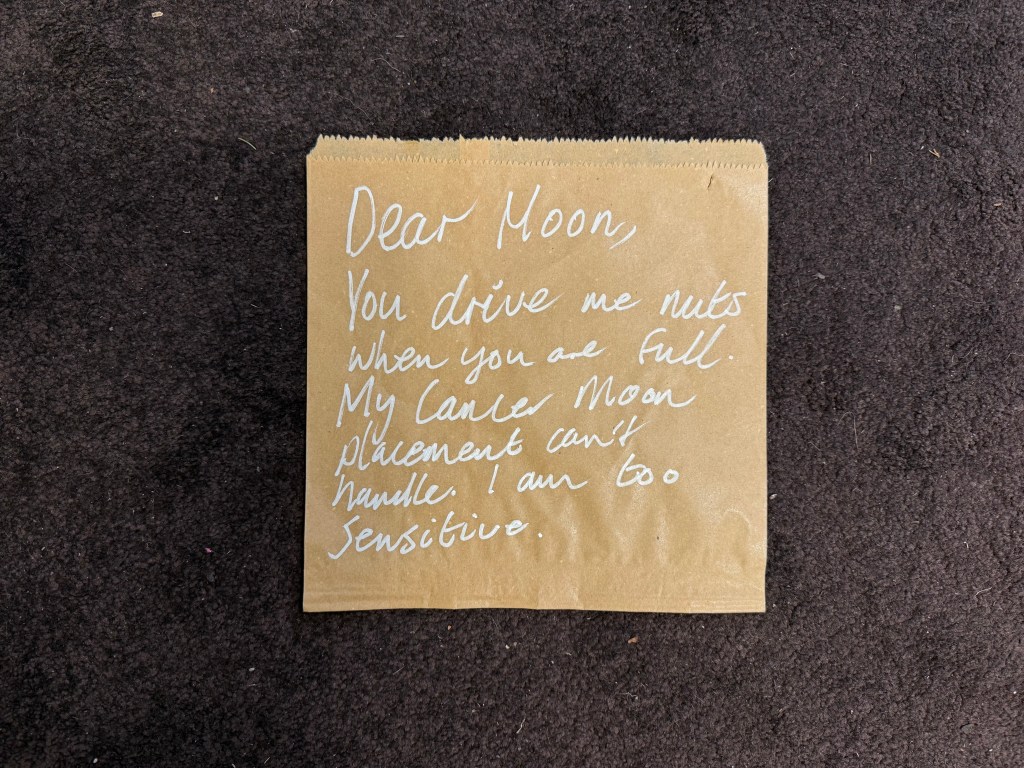 Dear Moon,
You drive me nuts
when you are full.
My Cancer Moon
placement can't
handle. I am too
sensitive.